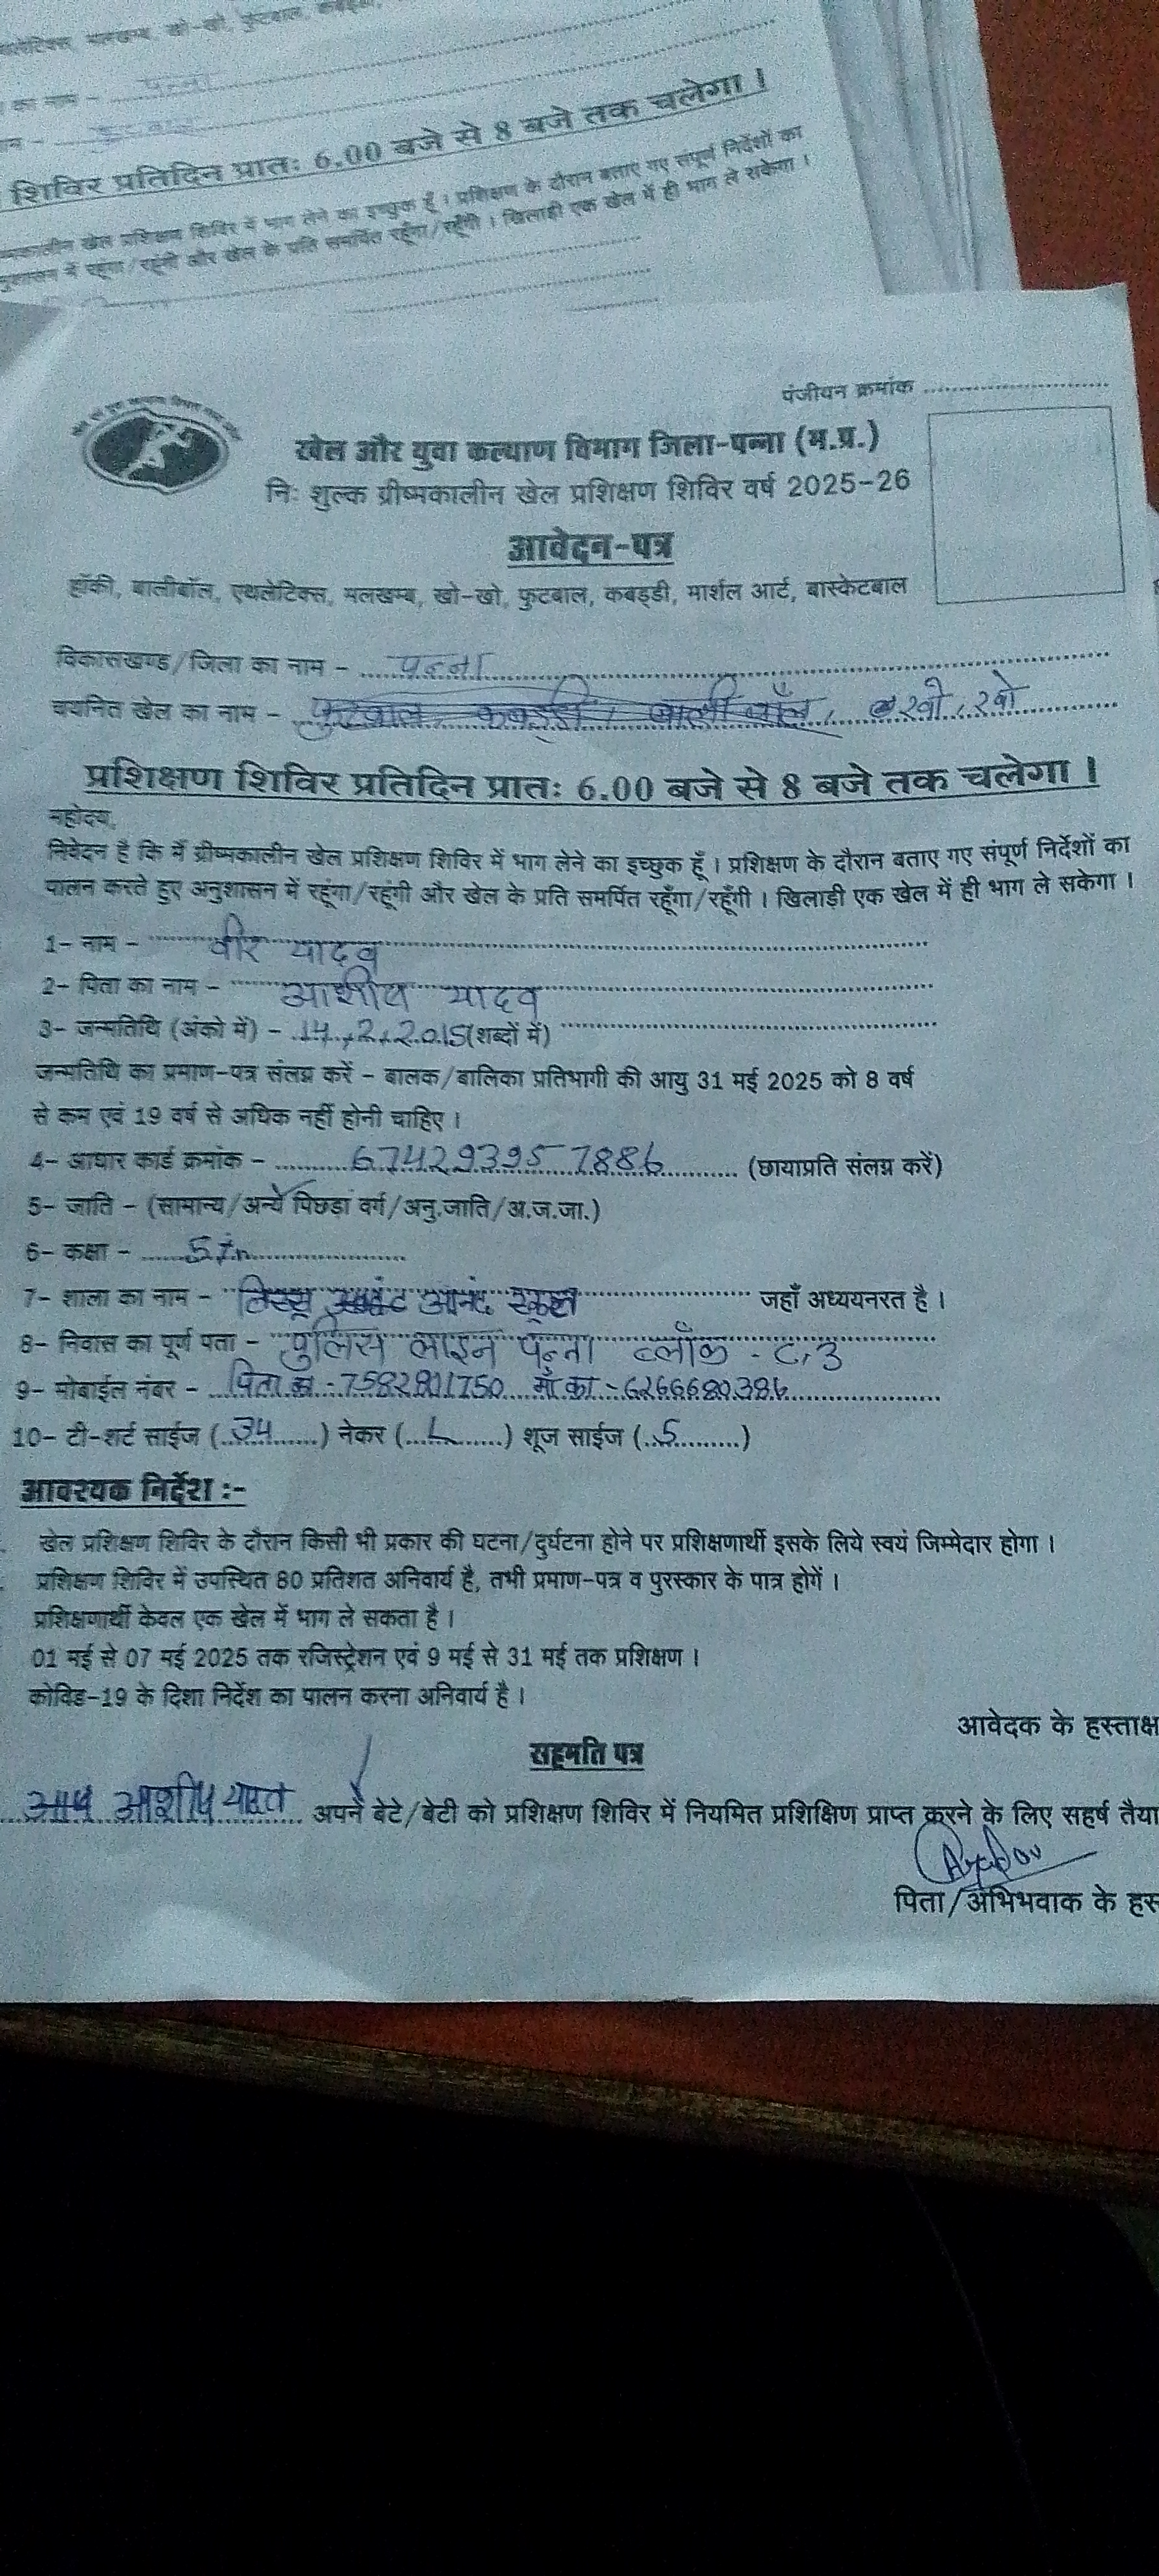 का नाम - पन्ना
शिविर प्रतिदिन प्रातः 6.00 बजे से 8 बजे तक चलेगा ।
खेल प्रशिक्षण शिविर में भाग लेने का इच्छुक हूँ । प्रशिक्षण के दौरान बताए गए संपूर्ण निर्देशों का
में रहूंगा/रहूंगी और खेल के प्रति समर्पित रहूँगा/रहूँगी । खिलाड़ी एक खेल में ही भाग ले सकेगा ।
पंजीयन क्रमांक
खेल और युवा कल्याण विभाग जिला-पन्ना (म.प्र.)
निः शुल्क ग्रीष्मकालीन खेल प्रशिक्षण शिविर वर्ष 2025-26
आवेदन-पत्र
हॉकी, बालीबॉल, एथलेटिक्स, मलखम्ब, खो-खो, फुटबाल, कबड्डी, मार्शल आर्ट, बास्केटबाल
विकासखण्ड/जिला का नाम - पन्ना
चयनित खेल का नाम - फुटबाल, कबड्डी, वाली बॉल, खो, खो
प्रशिक्षण शिविर प्रतिदिन प्रातः 6.00 बजे से 8 बजे तक चलेगा ।
महोदय,
निवेदन है कि मैं ग्रीष्मकालीन खेल प्रशिक्षण शिविर में भाग लेने का इच्छुक हूँ । प्रशिक्षण के दौरान बताए गए संपूर्ण निर्देशों का
पालन करते हुए अनुशासन में रहूंगा/रहूंगी और खेल के प्रति समर्पित रहूँगा/रहूँगी । खिलाड़ी एक खेल में ही भाग ले सकेगा ।
1- नाम - वीर यादव
2- पिता का नाम - आशीष यादव
3- जन्मतिथि (अंको में) - 14,2,2015 (शब्दों में)
जन्मतिथि का प्रमाण-पत्र संलग्न करें - बालक/बालिका प्रतिभागी की आयु 31 मई 2025 को 8 वर्ष
से कम एवं 19 वर्ष से अधिक नहीं होनी चाहिए ।
4- आधार कार्ड क्रमांक - 674293957886 (छायाप्रति संलग्न करें)
5- जाति - (सामान्य/अन्य पिछड़ा वर्ग/अनु.जाति/अ.ज.जा.)
6- कक्षा - 5th
7- शाला का नाम - आनंद स्कूल जहाँ अध्ययनरत है ।
8- निवास का पूर्ण पता - पुलिस लाइन पन्ना ब्लॉक - C,3
9- मोबाईल नंबर - पिता का - 7582801750 माँ का - 6266680386
10- टी-शर्ट साईज (34) नेकर (L) शूज साईज (5)
आवश्यक निर्देश :-
खेल प्रशिक्षण शिविर के दौरान किसी भी प्रकार की घटना/दुर्घटना होने पर प्रशिक्षणार्थी इसके लिये स्वयं जिम्मेदार होगा ।
प्रशिक्षण शिविर में उपस्थित 80 प्रतिशत अनिवार्य है, तभी प्रमाण-पत्र व पुरस्कार के पात्र होगें ।
प्रशिक्षणार्थी केवल एक खेल में भाग ले सकता है ।
01 मई से 07 मई 2025 तक रजिस्ट्रेशन एवं 9 मई से 31 मई तक प्रशिक्षण ।
कोविड-19 के दिशा निर्देश का पालन करना अनिवार्य है ।
आवेदक के हस्ताक्ष
सहमति पत्र
आशीष यादव अपने बेटे/बेटी को प्रशिक्षण शिविर में नियमित प्रशिक्षिण प्राप्त करने के लिए सहर्ष तैया
पिता/अभिभवाक के हस